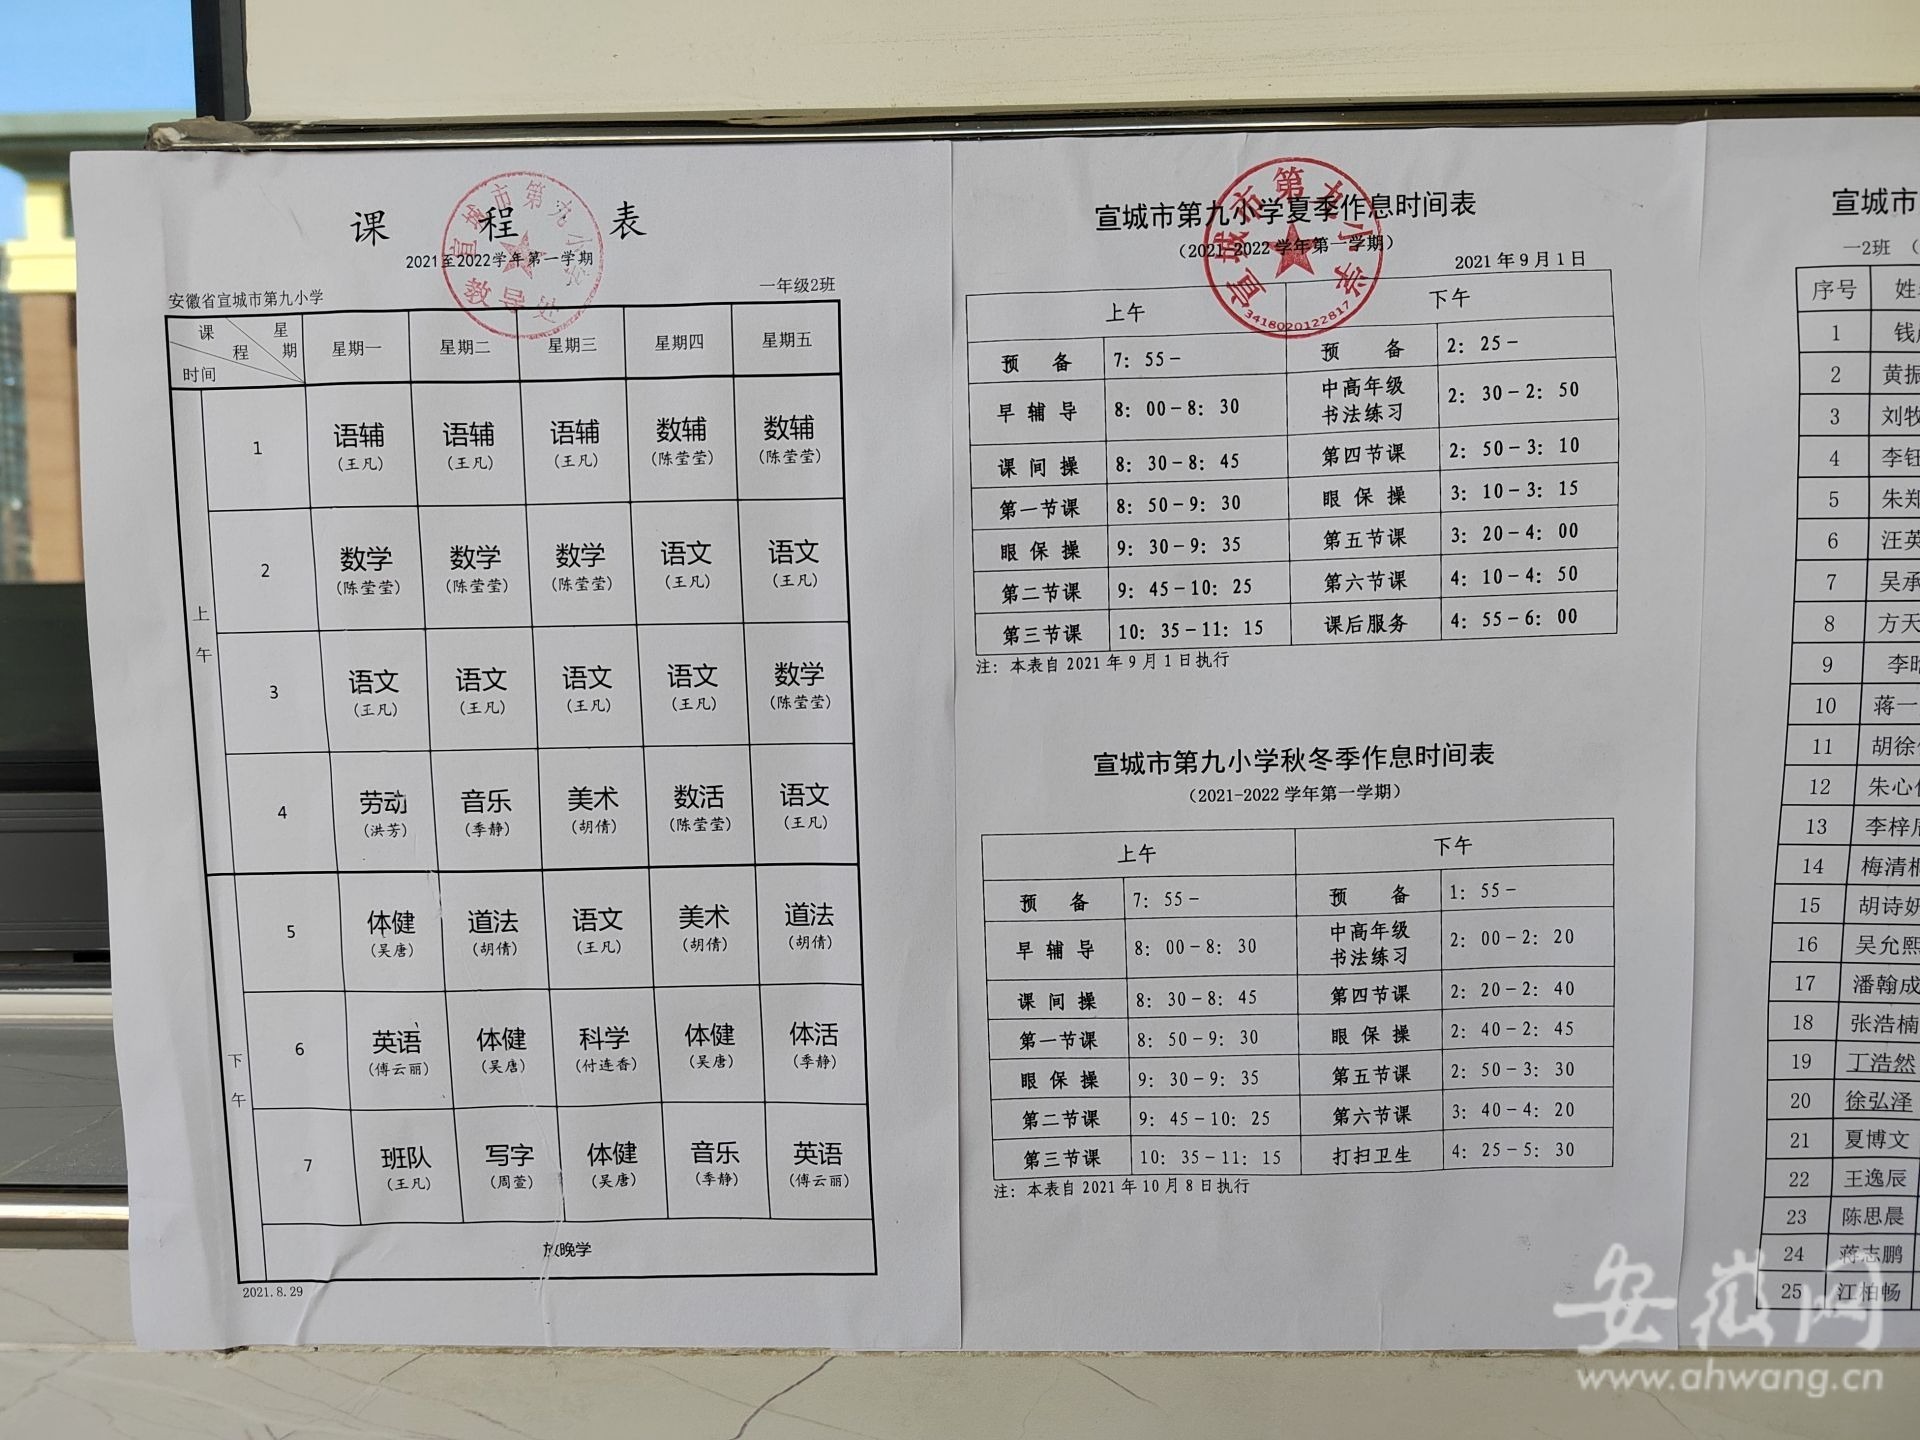 课 程 表
2021至2022学年第一学期
宣城市第九小学
教导处
安徽省宣城市第九小学 一年级2班
课程 星期 时间 星期一 星期二 星期三 星期四 星期五
上午
1 语辅 语辅 语辅 数辅 数辅
(王凡) (王凡) (王凡) (陈莹莹) (陈莹莹)
2 数学 数学 数学 语文 语文
(陈莹莹) (陈莹莹) (陈莹莹) (王凡) (王凡)
3 语文 语文 语文 语文 数学
(王凡) (王凡) (王凡) (王凡) (陈莹莹)
4 劳动 音乐 美术 数活 语文
(洪芳) (季静) (胡倩) (陈莹莹) (王凡)
下午
5 体健 道法 语文 美术 道法
(吴唐) (胡倩) (王凡) (胡倩) (胡倩)
6 英语 体健 科学 体健 体活
(傅云丽) (吴唐) (付连香) (吴唐) (季静)
7 班队 写字 体健 音乐 英语
(王凡) (周萱) (吴唐) (季静) (傅云丽)
放晚学
2021.8.29
宣城市第九小学夏季作息时间表
（2021-2022 学年第一学期）
宣城市第九小学
3418020122817
2021 年 9 月 1 日
上午 下午
预 备 7：55－ 预 备 2：25－
早 辅 导 8：00－8：30 中高年级
书法练习 2：30－2：50
课 间 操 8：30－8：45 第四节课 2：50－3：10
第一节课 8：50－9：30 眼 保 操 3：10－3：15
眼 保 操 9：30－9：35 第五节课 3：20－4：00
第二节课 9：45－10：25 第六节课 4：10－4：50
第三节课 10：35－11：15 课后服务 4：55－6：00
注：本表自 2021 年 9 月 1 日执行
宣城市第九小学秋冬季作息时间表
（2021-2022 学年第一学期）
上午 下午
预 备 7：55－ 预 备 1：55－
早 辅 导 8：00－8：30 中高年级
书法练习 2：00－2：20
课 间 操 8：30－8：45 第四节课 2：20－2：40
第一节课 8：50－9：30 眼 保 操 2：40－2：45
眼 保 操 9：30－9：35 第五节课 2：50－3：30
第二节课 9：45－10：25 第六节课 3：40－4：20
第三节课 10：35－11：15 打扫卫生 4：25－5：30
注：本表自 2021 年 10 月 8 日执行
宣城市
一2班 （
序号 姓
1 钱
2 黄振
3 刘牧
4 李钰
5 朱郑
6 汪英
7 吴承
8 方天
9 李
10 蒋一
11 胡徐
12 朱心
13 李梓
14 梅清
15 胡诗妍
16 吴允熙
17 潘翰成
18 张浩楠
19 丁浩然
20 徐弘泽
21 夏博文
22 王逸辰
23 陈思晨
24 蒋志鹏
25 江柏畅
安徽网
www.ahwang.cn